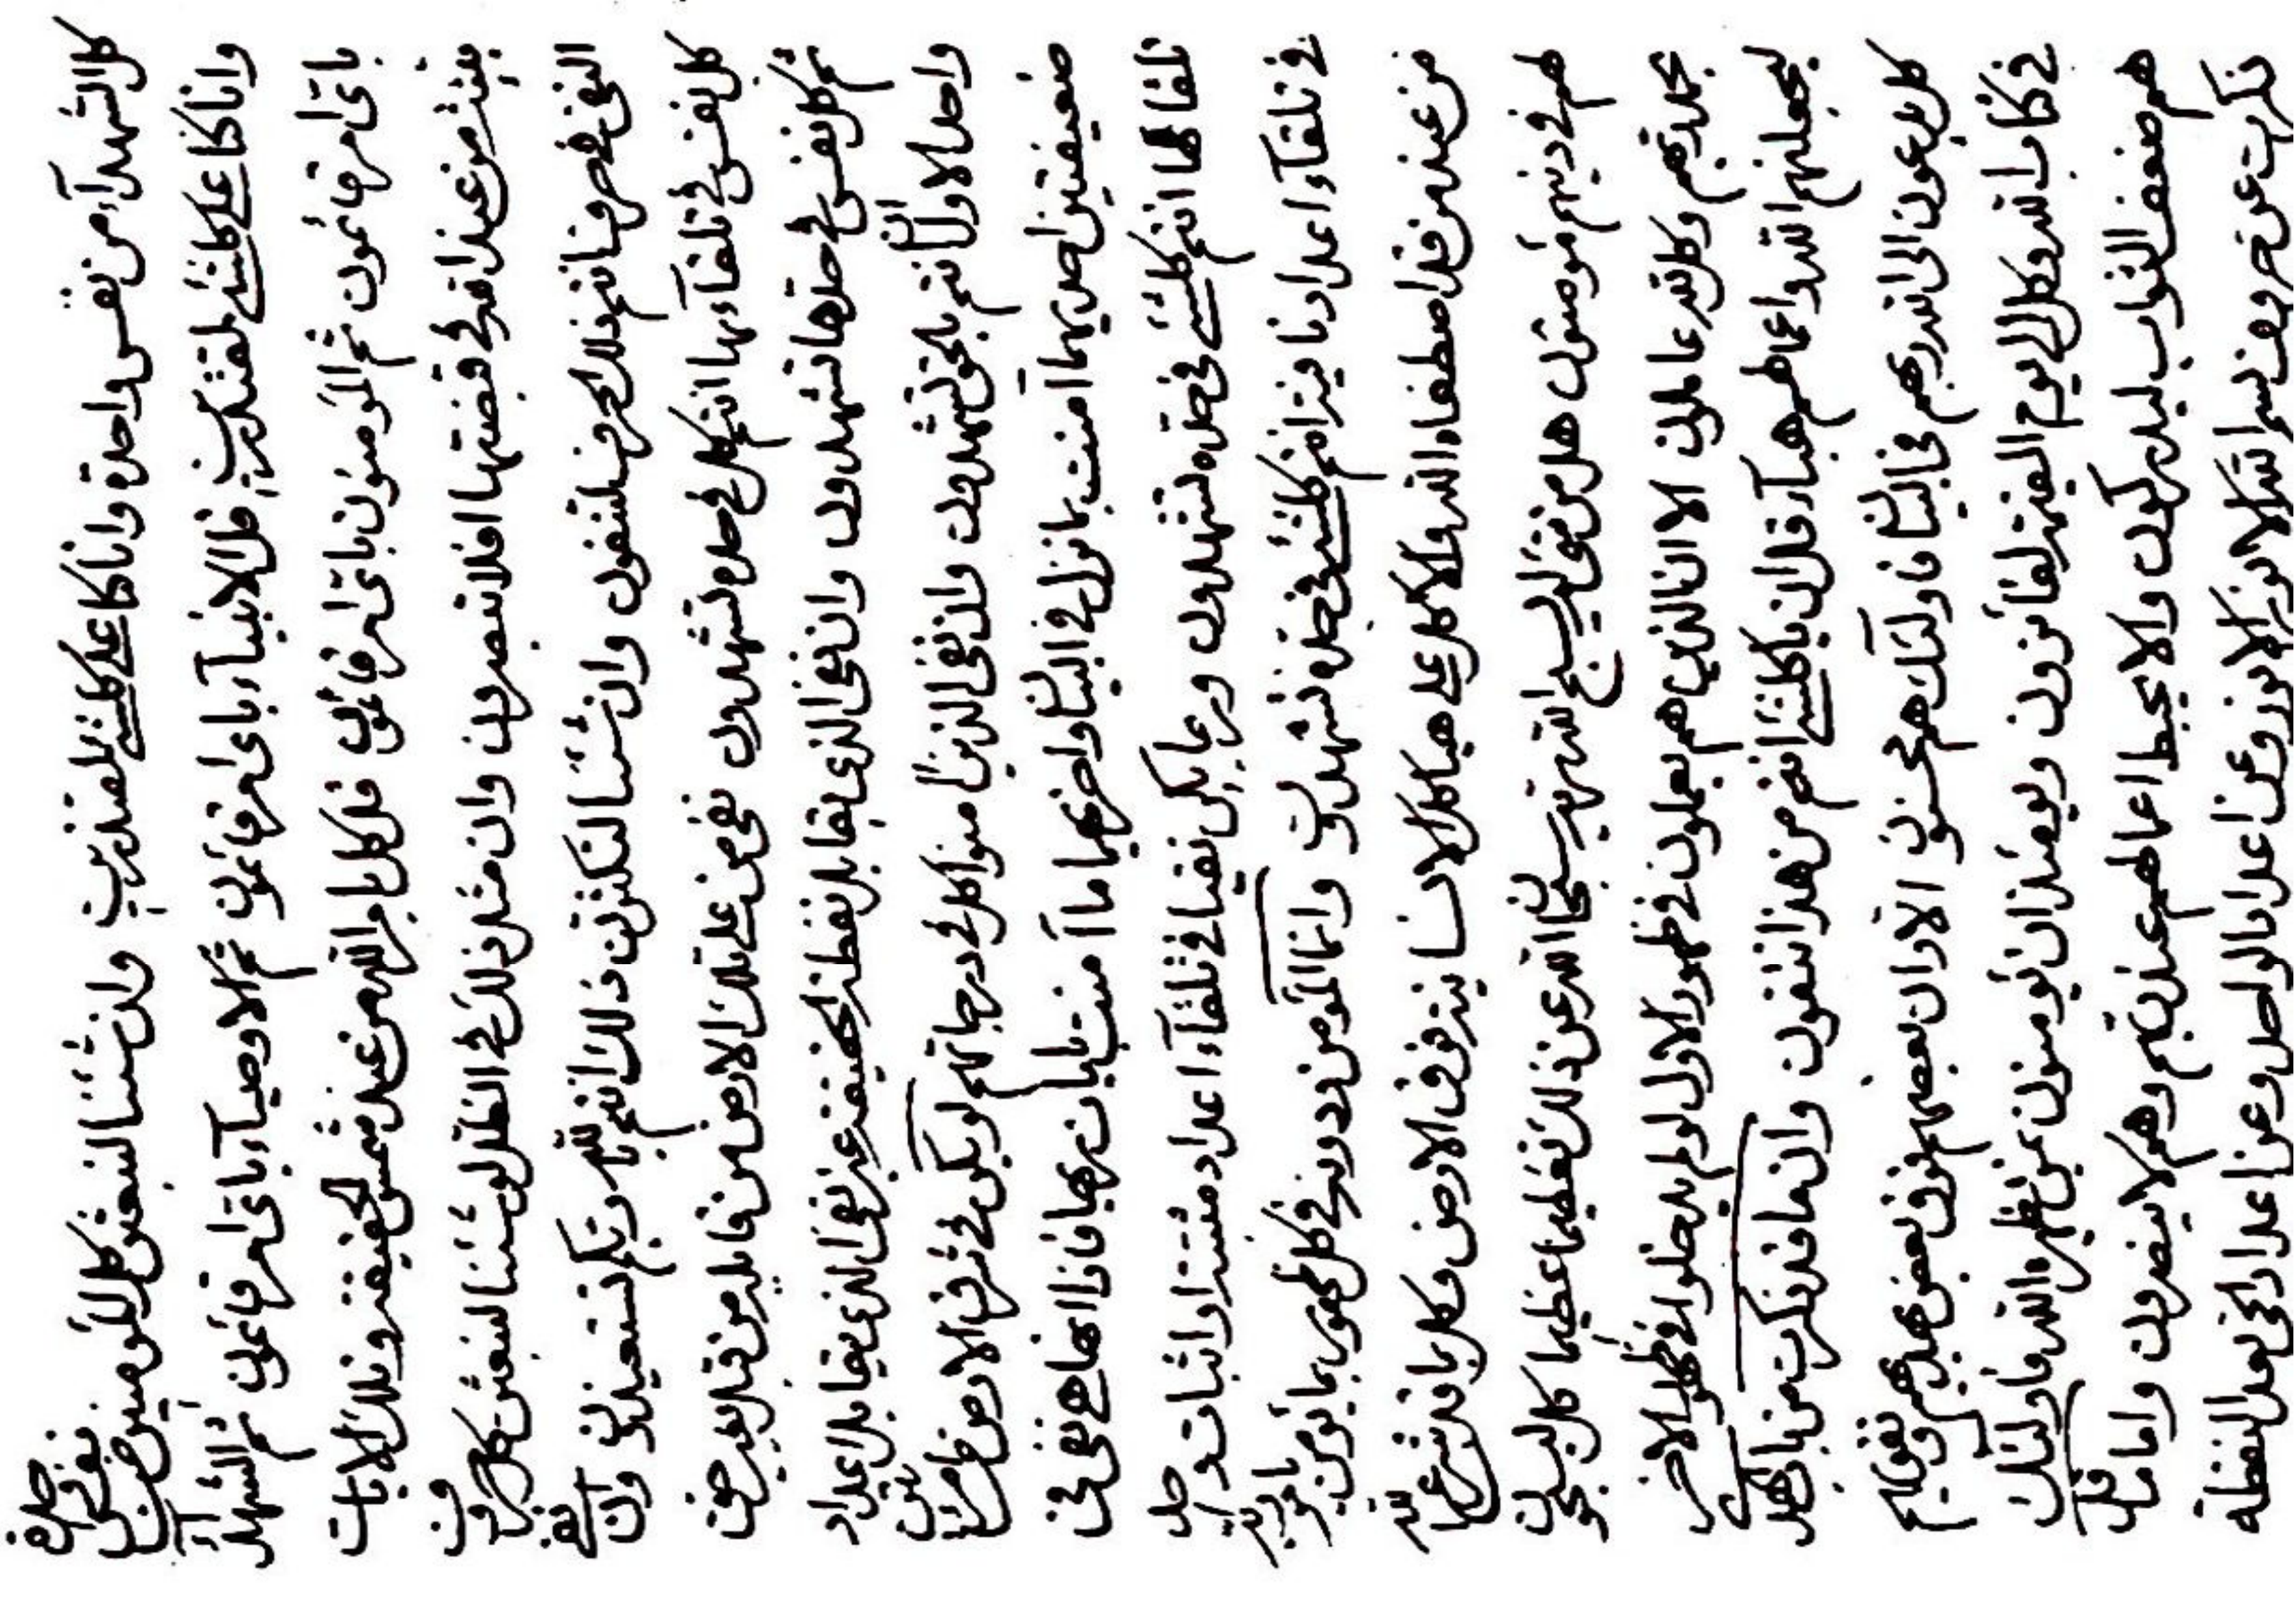 كل الشهدآء من نفس واحدة وانا كنا على كلشئ لمقتدرين ولئن شئنا لنبعثن كل المؤمنين من نفس واحدة
وانا كنا على كلشئ لمقتدرين قل الانبيآء باى امر قائمون ثم الاوصيآء باى امر قائمون ثم الشهدآء
باى امر قائمون ثم المؤمنون باى امر قائمون قل كل بامر الله من عند شمس الحقيقة وتلك الايات
يبعث من عند الله فى قبضتها افلا تبصرون وان مثل ذلك فى الظل لو شئنا لنبعثن كل حروف
النفى من حرف انتم فلذلك الحرف لتنفون وان شئنا لنكثرن ذلك انتم بالله ربكم تستعيذون وان
كل نفس فى تلقآء بها انتم كل فى حده تشهدون نفى من على تلك الارض من قابل من قبل بعد حين
ثم كل نفس فى حدها تشهدون وان نفى الذى يقابل نقطة الحقيقة غير نفى الذى يقابل اعداد
واحد الاول انتم بالحق تشهدون وان نفى الذين امنوا كل فى درجاتهم لو يكن فى شرق الارض
ضعيفتين احديهما امنت بما نزل فى البيان واخريهما ما امنت بايات ربها فاذا انها هى نفى فى
تلقائها انتم كلشئ فى حده تشهدون وربما يكن نفيا فى تلقآء اعداد مثبتة او اثبات واحد
فى تلقآء اعداد نافية انتم كلشئ فى حده تشهدون وانما المؤمن من دونه فى كل ظهور بما يؤمن بامر الله
من عند من قد اصطفاه الله والا كل على هياكل الانسانية فوق الارض وكل بما قد شرع الله
لهم فى دينهم مؤمنون هل من شئ الا يسبح الله ربه سبحان الله عن ذلك تعظيما عظيما كل ليسبحون
بحمد ربهم وكل لله عاملون الا ان الذين هم يعملون فى ظهور الاول لو لم يدخلوا فى ظهور الاخر
ليجعلنهم الله واعمالهم هبآء قل ان يا كلشئ انتم من هذا لتتقون وان ما قد ذكرت من باب هذا
كل يدعون الى الله ربهم فى البيان فاولئك هم محسنون الا وان بعضهم فوق بعض عند ربهم
فى كتاب الله وكل الى يوم القيمة لفائزون وبعد ان يؤمنون بمن يظهره الله فاولئك
هم ضعف الثواب ليدركون والا يحبط اعمالهم عند ربهم وهم لا ينصرون واما ما قد
ذكرت عن حروف بسم الله الانور الانور وعن اعداد الواحد وعن اعداد الحى بعد النقطة